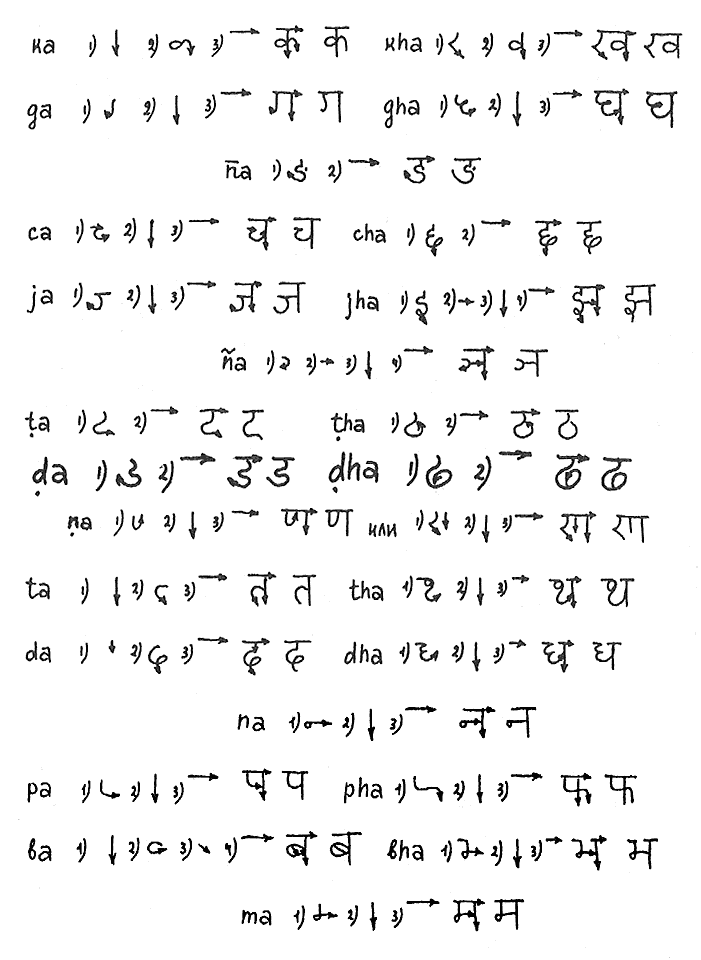 ка 1) 2) 3) क क kha 1) 2) 3) ख ख
ga 1) 2) 3) ग ग gha 1) 2) 3) घ घ
n̄a 1) 2) ङ ङ
ca 1) 2) 3) च च cha 1) 2) छ छ
ja 1) 2) 3) ज ज jha 1) 2) 3) 4) झ झ
ña 1) 2) 3) 4) ञ ञ
ṭa 1) 2) ट ट ṭha 1) 2) ठ ठ
ḍa 1) 2) ड ड ḍha 1) 2) ढ ढ
ṇa 1) 2) 3) ण ण или 1) 2) 3) ण ण
ta 1) 2) 3) त त tha 1) 2) 3) थ थ
da 1) 2) 3) द द dha 1) 2) 3) ध ध
na 1) 2) 3) न न
pa 1) 2) 3) प प pha 1) 2) 3) फ फ
ba 1) 2) 3) 4) ब ब bha 1) 2) 3) भ भ
ma 1) 2) 3) म म